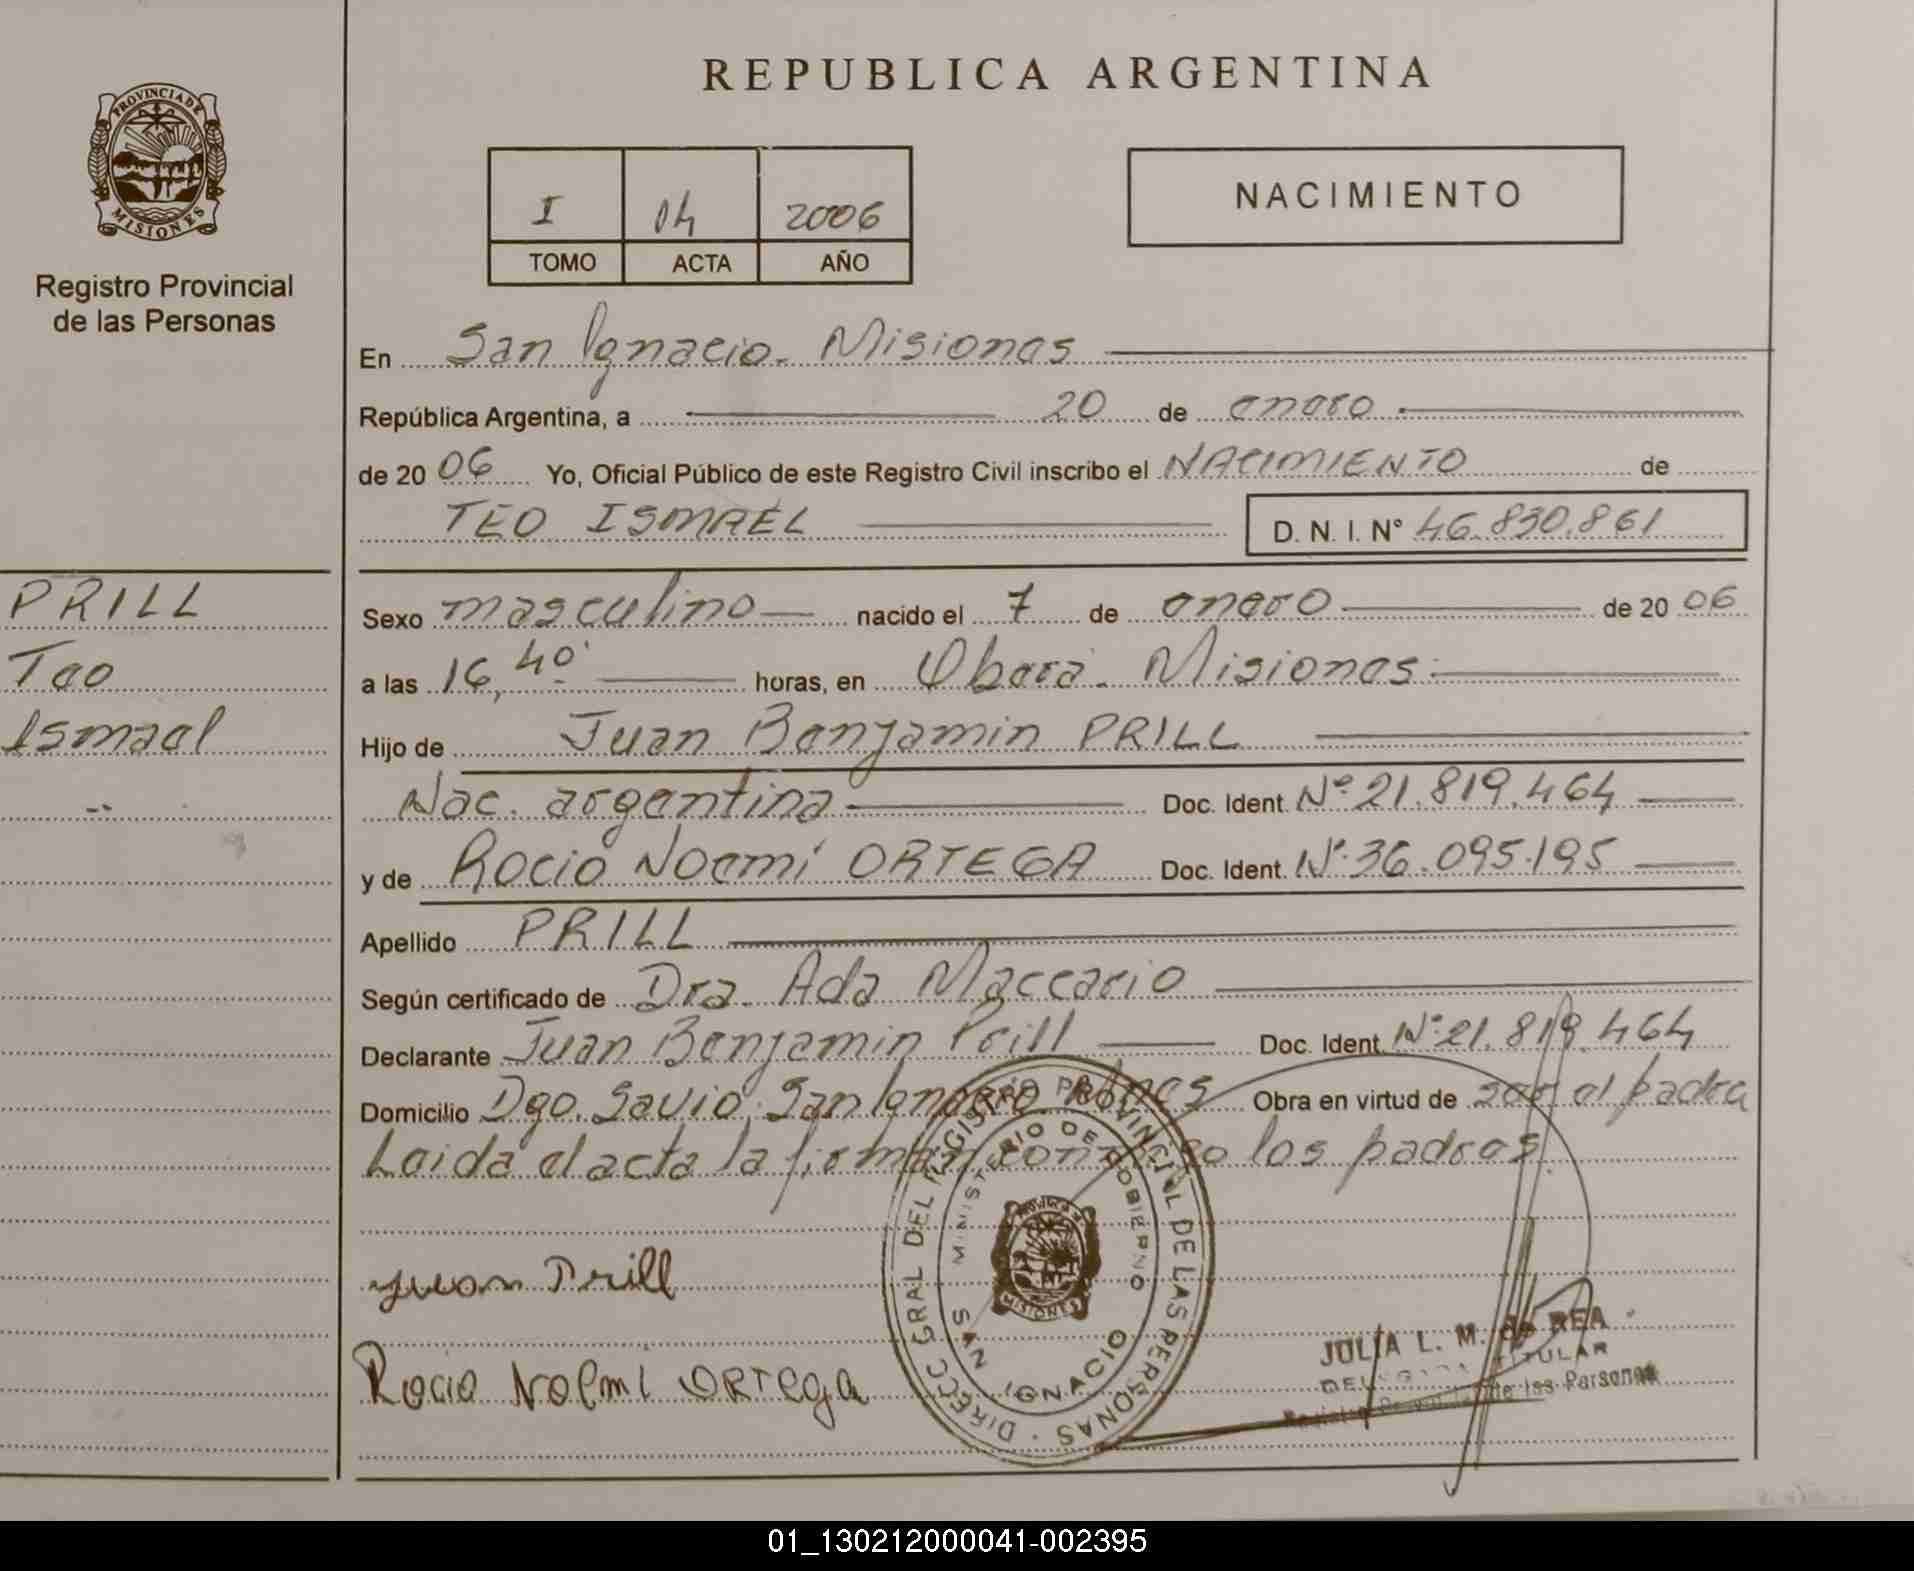 REPUBLICA ARGENTINA
PROVINCIA DE
MISIONES
Registro Provincial
de las Personas
I 04 2006
TOMO ACTA AÑO
NACIMIENTO
En San Ignacio. Misiones
República Argentina, a 20 de enero
de 20 06 Yo, Oficial Público de este Registro Civil inscribo el NACIMIENTO de
TEO ISMAEL D. N. I. N° 46.830.861
PRILL
Teo
Ismael
Sexo masculino nacido el 7 de enero de 20 06
a las 16,40' horas, en Oberá. Misiones.
Hijo de Juan Benjamin PRILL
Nac. argentina Doc. Ident. N° 21.819.464
y de Rocio Noemí ORTEGA Doc. Ident. N° 36.095.195
Apellido PRILL
Según certificado de Dra. Ada Maccario
Declarante Juan Benjamin Prill Doc. Ident. N° 21.819.464
Domicilio Dgo. Savio. San Ignacio Mnes Obra en virtud de ser el padre
Leida el acta la firman conmigo los padres.
Juan Prill
Rocio Noemi ORTEGA
DIRECC GRAL DEL REGISTRO PROVINCIAL DE LAS PERSONAS
MINISTERIO DE GOBIERNO
SAN IGNACIO
MISIONES
JULIA L. M. de REA
TITULAR
de las Personas
01_130212000041-002395